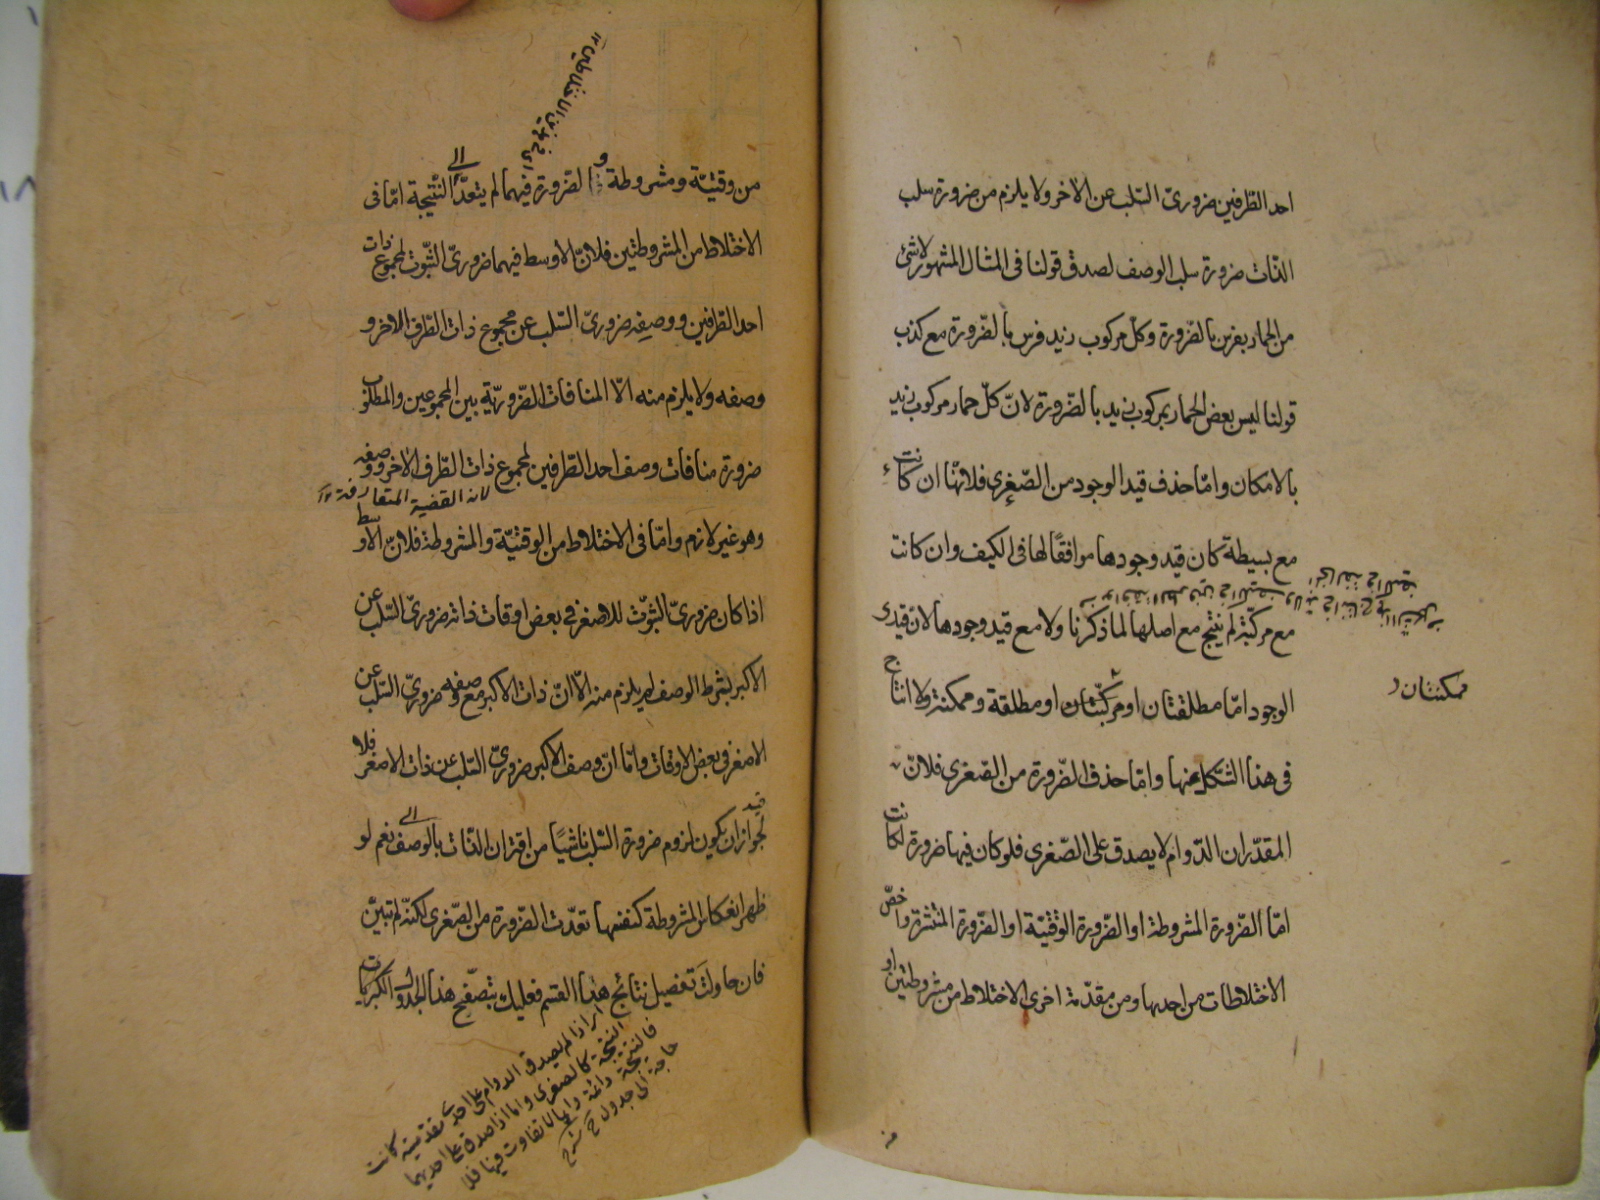 احد الطّرفين ضرورىّ السّلب عن الآخر ولا يلزم من ضرورة سلب
الذّات ضرورة سلب الوصف لصدق قولنا فى المثال المشهور لا شئ
من الحمار بفرس بالضّرورة وكلّ مركوب زيد فرس بالضّرورة مع كذب
قولنا ليس بعض الحمار بمركوب زيد بالضّرورة لانّ كلّ حمار مركوب زيد
بالامكان وامّا حذف قيد الوجود من الصّغرى فلانّها ان كانت
مع بسيطة كان قيد وجودها موافقًا لها فى الكيف وان كانت
مع مركّبة لم ينتج مع اصلها لما ذكرنا ولا مع قيد وجودها لانّ قيدى
الوجود امّا مطلقتان او مركّبتان او مطلقة وممكنة ولا انتاج
ممكنتان
فى هذا الشّكل منها وامّا حذف الضّرورة من الصّغرى فلانّ
المقدّر ان الدّوام لا يصدق على الصّغرى فلو كان فيها ضرورة لكانت
امّا الضّرورة المشروطة او الضّرورة الوقتيّة او الضّرورة المنتشرة واخصّ
الاختلاطات من احديها ومن مقدّمة اخرى الاختلاط من مشروطتين او
من وقتيّة ومشروطة و الضّرورة فيهما لم يتعدّ الى النّتيجة امّا فى
الاختلاط من المشروطتين فلانّ الاوسط فيهما ضرورىّ الثّبوت لمجموع ذات
احد الطّرفين ووصفه ضرورىّ السّلب عن مجموع ذات الطّرف الآخر و
وصفه ولا يلزم منه الّا المنافات الضّروريّة بين المجموعين والمطلوب
ضرورة منافات وصف احد الطّرفين لمجموع ذات الطّرف الآخر ووصفه
لانه القضية المتعارفة
وهو غير لازم وامّا فى الاختلاط من الوقتيّة والمشروطة فلانّ الاوسط
اذا كان ضرورىّ الثّبوت للاصغر فى بعض اوقات ذاته ضرورىّ السّلب عن
الاكبر بشرط الوصف لم يلزم منه الّا انّ ذات الاكبر مع وصفه ضرورىّ السّلب عن
الاصغر فى بعض الاوقات وامّا انّ وصف الاكبر ضرورىّ السّلب عن ذات الاصغر فلا
لجواز ان يكون لزوم ضرورة السّلب ناشيًا من اقتران الذّات بالوصف نعم لو
ظهر انعكاس المشروطة كنفسها تعدّت الضّرورة من الصّغرى لكنّه لم تبيّن
فان حاولت تفصيل نتائج هذا القسم فعليك بتصفّح هذا الجدول الكبريات
اذا لم يصدق الدوام على احدى مقدمتيه كانت
النتيجة كالصغرى واما اذا صدق على احديهما
فالنتيجة دائمة
حاجة الى جدول